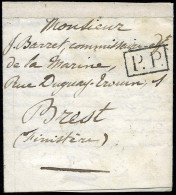 Monsieur
J. Barret, commissaire
de la Marine,
Rue Duguay-Trouin,
P.P.
Brest
(Finistère)